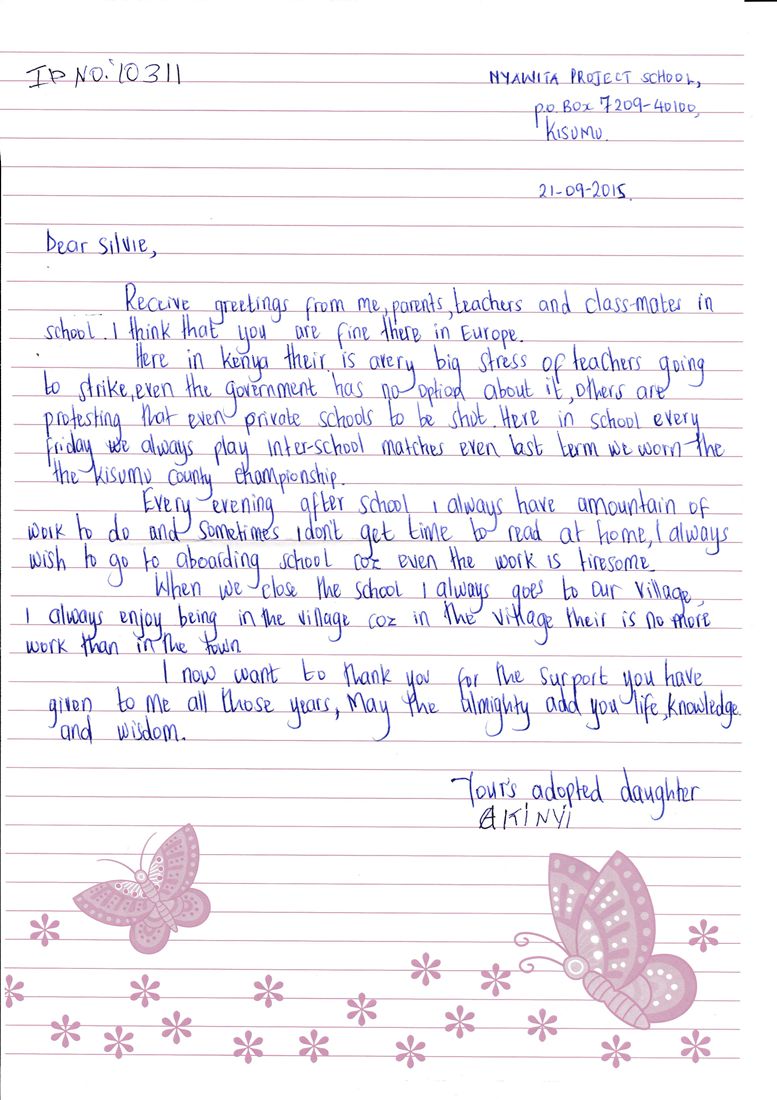 ID NO: 10311
NYAWITA PROJECT SCHOOL,
P.O. BOX 7209-40100,
KISUMU.
21-09-2015.
Dear Silvie,
Receive greetings from me, parents, teachers and class-mates in
school. I think that you are fine there in Europe.
Here in Kenya their is avery big stress of teachers going
to strike, even the government has no option about it, others are
protesting that even private schools to be shut. Here in school every
friday we always play inter-school matches even last term we worn the
the Kisumu county championship.
Every evening after school I always have amountain of
work to do and sometimes I don't get time to read at home, I always
wish to go to aboarding school coz even the work is tiresome.
When we close the school I always goes to our village,
I always enjoy being in the village coz in the village their is no more
work than in the town
I now want to thank you for the support you have
given to me all those years, May the almighty add you life, knowledge
and wisdom.
Your's adopted daughter
AKINYI